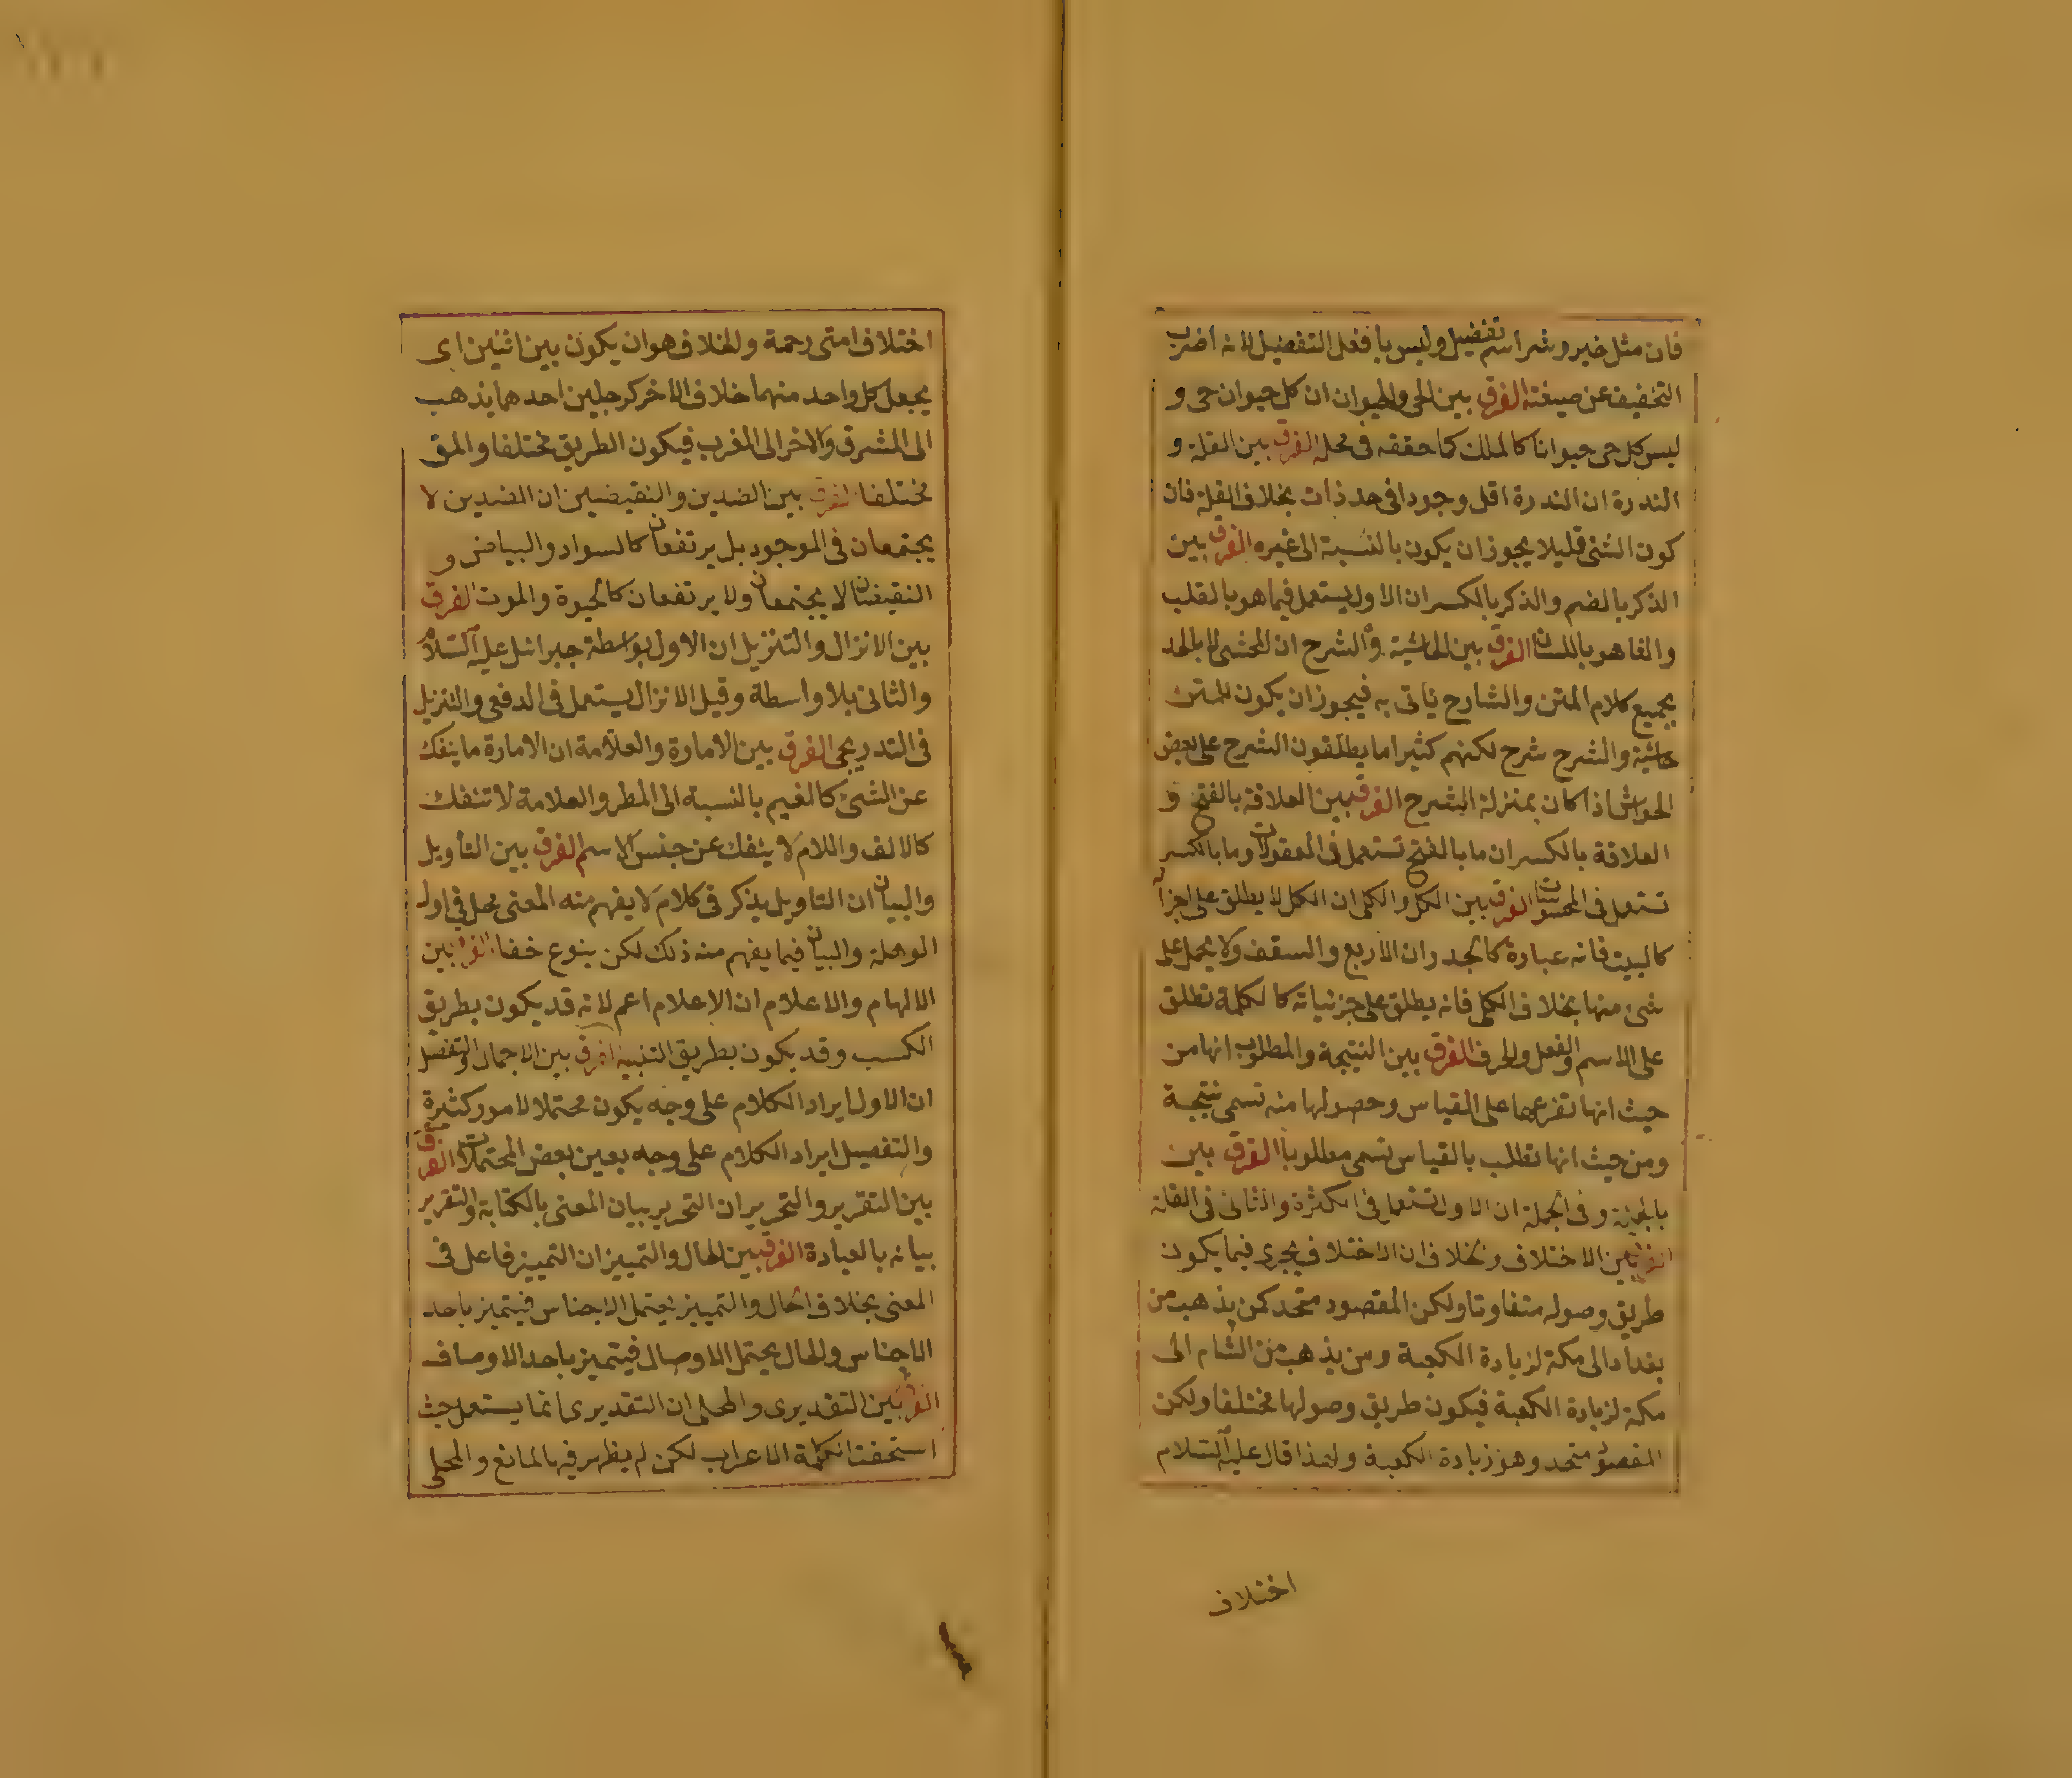 فان مثل خير وشر اسم تفضيل وليس بافعل التفضيل لانه اضرب
التخفيف عن صيغته الفرق بين الحى والحيوان ان كل حيوان حى و
ليس كل حى حيوانا كالملك كما حققه فى محله الفرق بين القلة و
الندرة ان الندرة اقل وجودا فى حد ذات بخلاف القلة فان
كون الشئ قليلا يجوز ان يكون بالنسبة الى غيره الفرق بين
الذكر بالضم والذكر بالكسر ان الاول يستعمل فيما هو بالقلب
والفا هو باللسان الفرق بين الحاشية والشرح ان المحشى لا بالحد
بجميع كلام المتن والشارح يأتى به فيجوز ان يكون للمتن
حاشية والشرح شرح لكنهم كثيرا ما يطلقون الشرح على بعض
الحواش اذا كان بمنزلة الشرح الفرق بين العلاقة بالفتح و
العلاقة بالكسر ان ما بالفتح تستعمل فى المعقولات وما بالكسر
تستعمل فى المحسوسات الفرق بين الكل والكلى ان الكل لا يطلق على اجزا
كالبيت فانه عبارة كالجدران الاربع والسقف ولا يحمل على
شئ منها بخلاف الكلى فانه يطلق على جزئياته كالكلمة تطلق
على الاسم والفعل والحرف الفرق بين النتيجة والمطلوب انها من
حيث انها تفرعها على القياس وحصولها منه تسمى نتيجة
ومن حيث انها تطلب بالقياس تسمى مطلوبا الفرق بين
بالجملة وفى الجملة ان الاول تستعمل فى الكثرة والثانى فى القلة
الفرق بين الاختلاف وبخلاف ان الاختلاف يجرى فيما يكون
طريق وصوله متفاوتا ولكن المقصود متحد كمن يذهب من
بغداد الى مكة لزيادة الكعبة ومن يذهب من الشام الى
مكة لزيادة الكعبة فيكون طريق وصولها مختلفا ولكن
المقصود متحد وهو زيادة الكعبة ولهذا قال عليه السلام
اختلاف
اختلاف امتى رحمة والخلاف هو ان يكون بين اثنين اى
يجعل كل واحد منهما خلاف الاخر كرجلين احدهما يذهب
الى المشرق والاخر الى المغرب فيكون الطريق مختلفا والمق
مختلفا الفرق بين الضدين والنقيضين ان الضدين لا
يجتمعان فى الموجود بل يرتفعان كالسواد والبياض و
النقيضان لا يجتمعان ولا يرتفعان كالحيوة والموت الفرق
بين الانزال والتنزيل ان الاول بواسطة جبرائل عليه السلام
والثانى بلا واسطة وقيل الانزال يستعمل فى الدفعى والتنزيل
فى التدريجى الفرق بين الامارة والعلامة ان الامارة ما ينفك
عن الشئ كالغيم بالنسبة الى المطر والعلامة لا تنفك
كالالف واللام لا ينفك عن جنس الاسم الفرق بين التأويل
والبيان ان التاويل يذكر فى كلام لا يفهم منه المعنى محل فى اول
الوهلة والبيان فيما يفهم منه ذلك لكن بنوع خفا الفرق بين
الالهام والاعلام ان الاعلام اعم لانه قد يكون بطريق
الكسب وقد يكون بطريق التنبيه الفرق بين الاجمال والتفصيل
ان الاول ايراد الكلام على وجه يكون محتملا لامور كثيرة
والتفصيل ايراد الكلام على وجه بعين بعض المحتملات الفرق
بين التقرير والتحرير ان التحرير بيان المعنى بالكتابة والتقرير
بيانه بالعبادة الفرق بين الحال والتمييز ان التمييز فاعل فى
المعنى بخلاف الحال والتمييز يحتمل الاجناس فيتميز باحد
الاجناس والحال يحتمل الاوصال فيتميز باحد الاوصاف
الفرق بين التقديرى والمحلى ان التقديرى انما يستعمل حيث
استحقت الكلمة الاعراب لكن لم يظهر فيها لمانع والمحلى